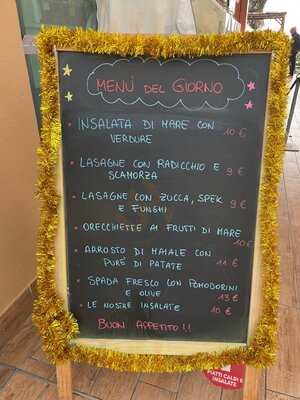 MENÙ DEL GIORNO
INSALATA DI MARE CON
VERDURE 10 €
LASAGNE CON RADICCHIO E
SCAMORZA 9 €
LASAGNE CON ZUCCA, SPEK
E FUNGHI 9 €
ORECCHIETTE AI FRUTTI DI MARE
10 €
ARROSTO DI MAIALE CON
PURÈ DI PATATE 11 €
SPADA FRESCO CON POMODORINI
E OLIVE 13 €
LE NOSTRE INSALATE 10 €
BUON APPETITO!!
PIATTI CALDI E
INSALATE